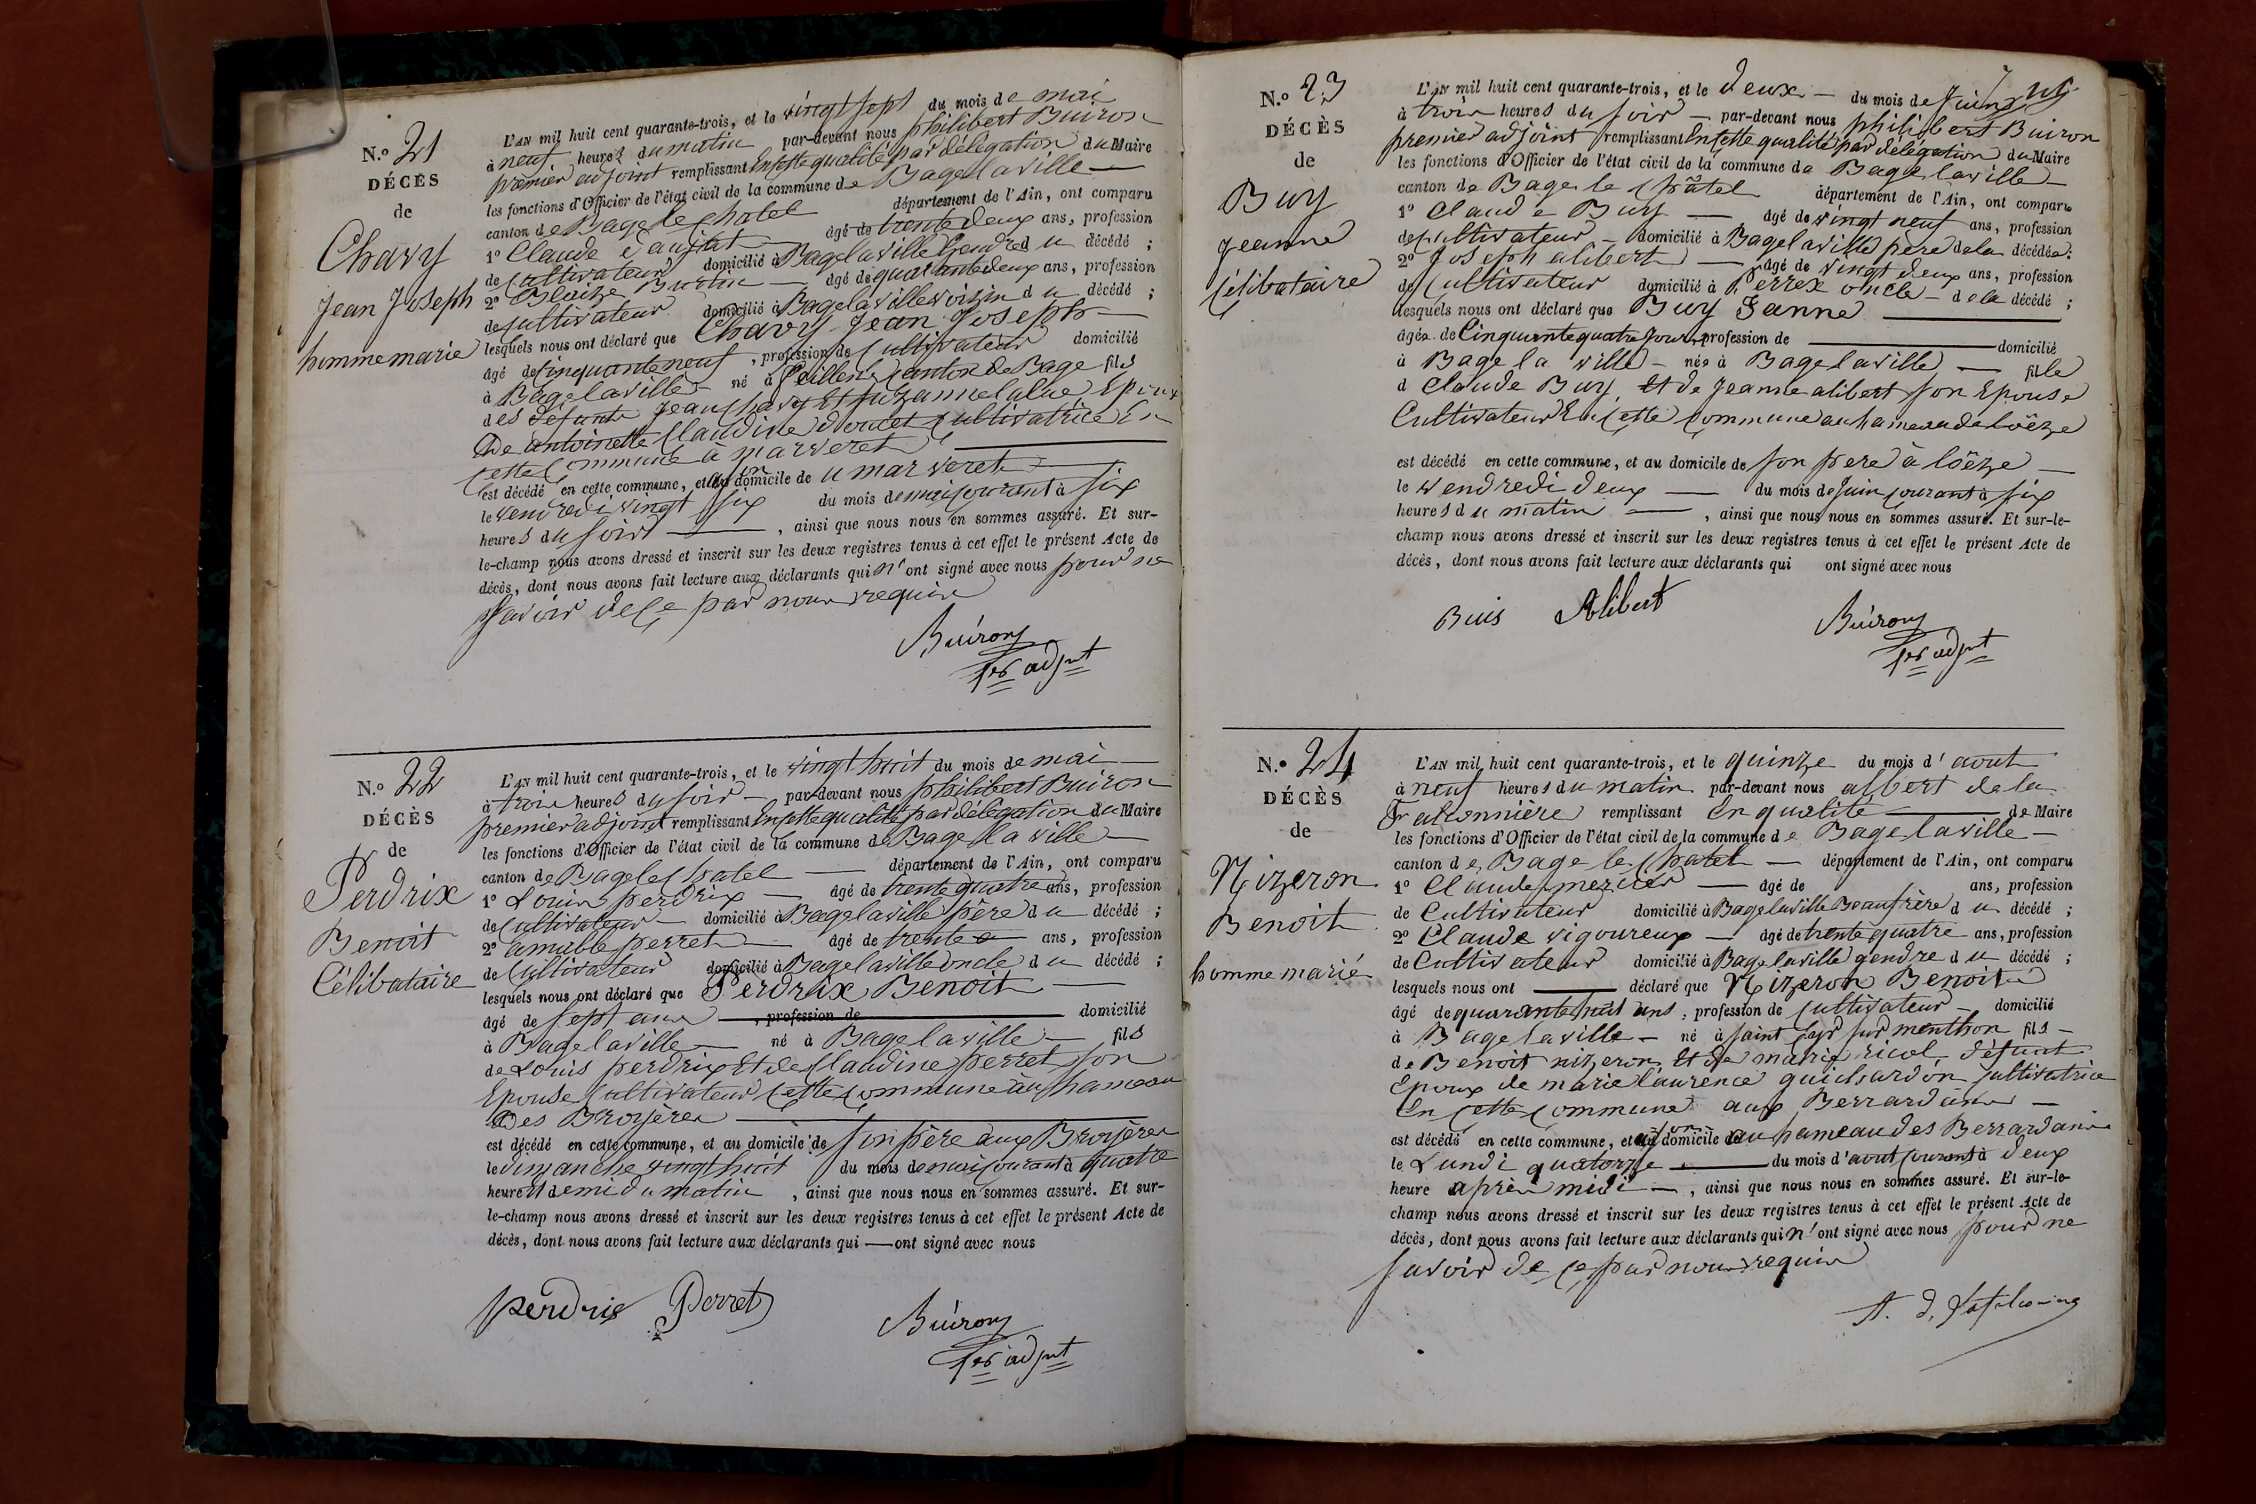 N.º 21
DÉCÈS
de
Chavy
Jean Joseph
homme marié
L'AN mil huit cent quarante-trois, et le vingt sept du mois de mai
à neuf heures du matin par-devant nous philibert Buiron
premier adjoint remplissant En cette qualité par délégation du Maire
les fonctions d'Officier de l'état civil de la commune de Bagelaville
canton de Bage le chatel département de l'Ain, ont comparu
1º Claude âgé de trente deux ans, profession
de Cultivateur domicilié à Bagelaville Gendre du décédé ;
2º Blaize Burtin âgé de quarante deux ans, profession
de Cultivateur domicilié à Bagelaville voisin du décédé ;
lesquels nous ont déclaré que Chavy Jean Joseph
âgé de Cinquante neuf , profession de Cultivateur domicilié
à Bagelaville né à canton de Bage fils
des défunts Jean Chavy Et Suzanne Epoux
De antoinette Claudine doucet Cultivatrice En
cette Commune à marveret
est décédé en cette commune, et au domicile de marveret
le vendredi vingt six du mois de mai courant à six
heures du soir , ainsi que nous nous en sommes assuré. Et sur-
le-champ nous avons dressé et inscrit sur les deux registres tenus à cet effet le présent Acte de
décès, dont nous avons fait lecture aux déclarants qui n'ont signé avec nous pour ne
savoir de ce par nous requis
Buiron
1er adjnt
N.º 22
DÉCÈS
de
Perdrix
Benoit
Célibataire
L'AN mil huit cent quarante-trois, et le vingt huit du mois de mai
à trois heures du soir par-devant nous philibert Buiron
premier adjoint remplissant En cette qualité par délégation du Maire
les fonctions d'Officier de l'état civil de la commune de Bage la ville
canton de Bage le chatel département de l'Ain, ont comparu
1º Louis perdrix âgé de trente quatre ans, profession
de Cultivateur domicilié à Bagelaville père du décédé ;
2º amable perret âgé de trente ans, profession
de Cultivateur domicilié à Bagelaville oncle du décédé ;
lesquels nous ont déclaré que Perdrix Benoit
âgé de sept ans , profession de domicilié
à Bagelaville né à Bagelaville fils
de Louis perdrix Et de Claudine perret son
Epouse Cultivateur cette commune au hameau
Des Broyères
est décédé en cette commune, et au domicile de son père aux Broyères
le dimanche vingt huit du mois de mai courant à quatre
heures et demi du matin , ainsi que nous nous en sommes assuré. Et sur-
le-champ nous avons dressé et inscrit sur les deux registres tenus à cet effet le présent Acte de
décès, dont nous avons fait lecture aux déclarants qui ont signé avec nous
perdrix Perret
Buiron
1er adjnt
N.º 23
DÉCÈS
de
Buy
jeanne
Célibataire
L'AN mil huit cent quarante-trois, et le deux du mois de Juin
à trois heures du soir par-devant nous philibert Buiron
premier adjoint remplissant En cette qualité par délégation du Maire
les fonctions d'Officier de l'état civil de la commune de Bagelaville
canton de Bage le Châtel département de l'Ain, ont comparu
1º Claude Buy âgé de vingt neuf ans, profession
de cultivateur domicilié à Bagelaville père de la décédée ;
2º Joseph alibert âgé de vingt deux ans, profession
de Cultivateur domicilié à Perrex oncle de la décédé ;
lesquels nous ont déclaré que Buy Janne
âgée de Cinquante quatre jours profession de domicilié
à Bage la ville née à Bagelaville fille
d Claude Buy Et de Jeanne alibert son Epouse
Cultivateur En Cette Commune au hameau de Loëze
est décédé en cette commune, et au domicile de son pere à loëze
le vendredi deux du mois de Juin courant à six
heures du matin , ainsi que nous nous en sommes assuré. Et sur-le-
champ nous avons dressé et inscrit sur les deux registres tenus à cet effet le présent Acte de
décès, dont nous avons fait lecture aux déclarants qui ont signé avec nous
Buis Alibert
Buiron
1er adjnt
N.º 24
DÉCÈS
de
Nizeron
Benoit
homme marié
L'AN mil huit cent quarante-trois, et le quinze du mois d'aout
à neuf heures du matin par-devant nous albert dela
Falconnière remplissant En qualité de Maire
les fonctions d'Officier de l'état civil de la commune de Bagelaville
canton de Bage le Chatel département de l'Ain, ont comparu
1º Claude mercier âgé de ans, profession
de Cultivateur domicilié à Bagelaville Beaufrère du décédé ;
2º Claude vigoureux âgé de trente quatre ans, profession
de Cultivateur domicilié à Bagelaville gendre du décédé ;
lesquels nous ont déclaré que Nizeron Benoit
âgé de quarante huit ans , profession de Cultivateur domicilié
à Bagelaville né à saint Cyr sur menthon fils
de Benoit nizeron Et de marie ricol défunt
Epoux de marie laurence guichardon Cultivatrice
En Cette Commune aux Berrardans
est décédé en cette commune, et son domicile au hameau des Berrardans
le Lundi quatorze du mois d'aout courant à deux
heure après midi , ainsi que nous nous en sommes assuré. Et sur-le-
champ nous avons dressé et inscrit sur les deux registres tenus à cet effet le présent Acte de
décès, dont nous avons fait lecture aux déclarants qui n'ont signé avec nous pour ne
savoir de ce par nous requis